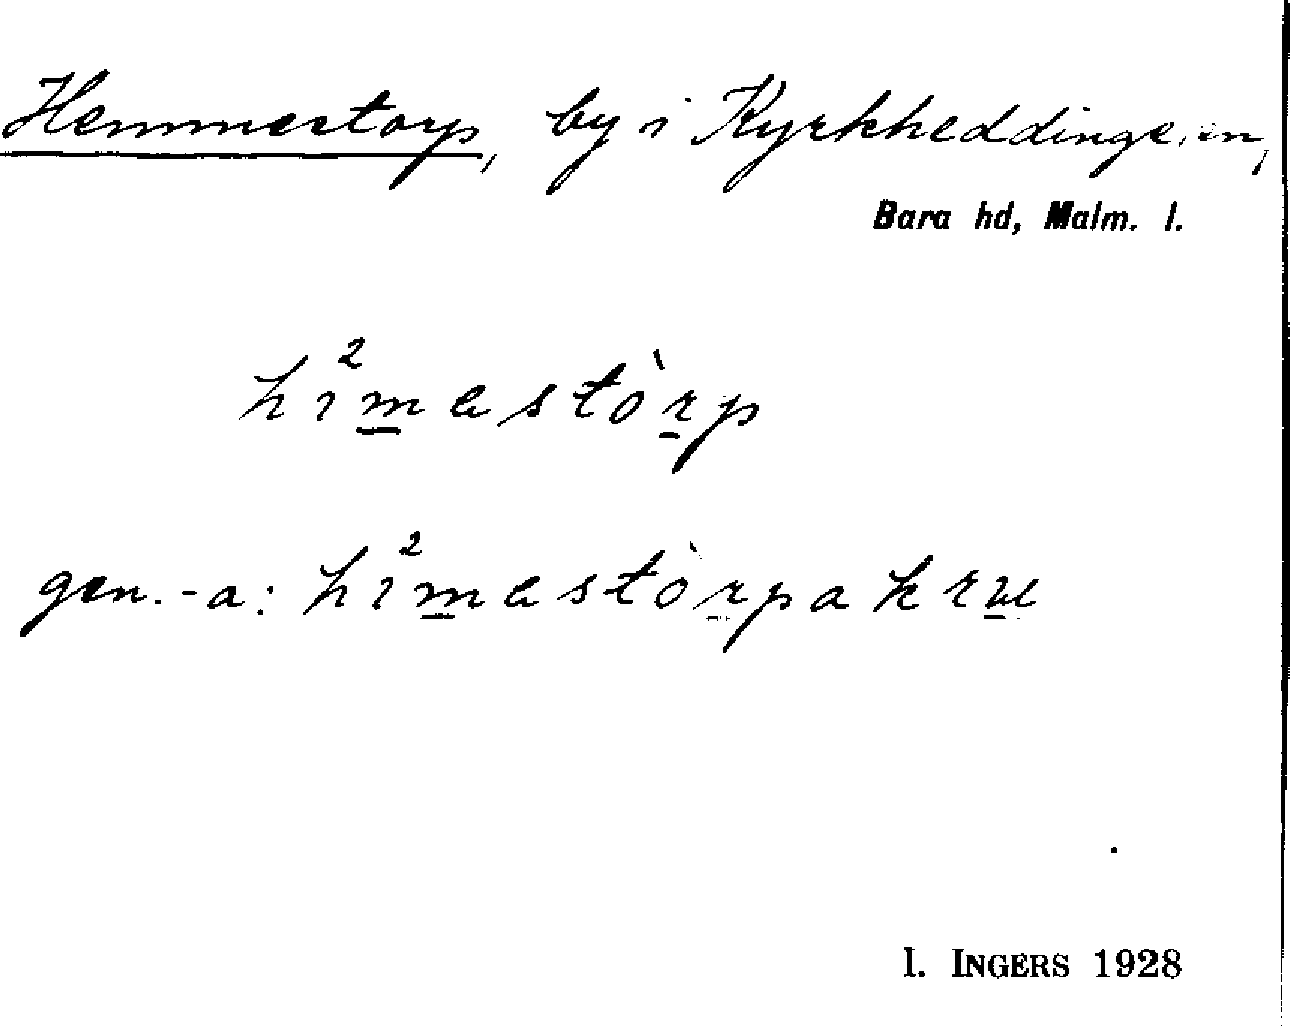 Hemmestorp, by i Kyrkheddinge sn,
Bara hd, Malm. l.
hi²mestòrp
gen. -a: hi²mestòrpakrɯ
I. INGERS 1928